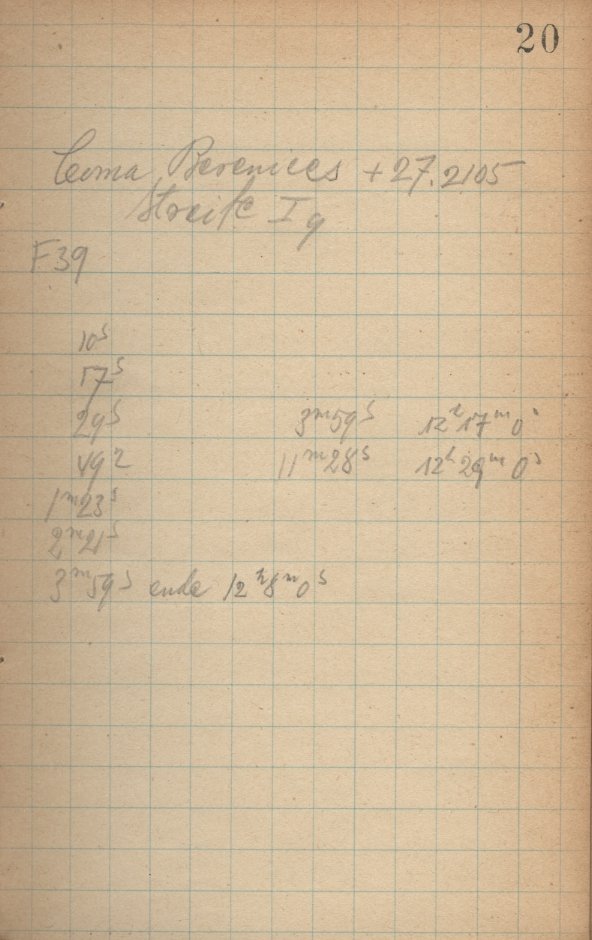 20
Coma Berenices +27.2105
Streife I g
F39
10s
17s
29s 3m59s 12h17m0s
49s 11m28s 12h29m0s
1m23s
2m21s
3m59s ende 12h8m0s